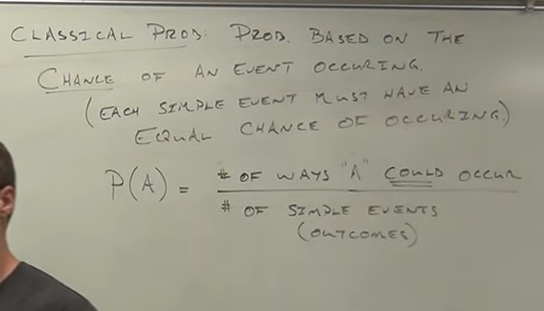 CLASSICAL PROB: PROB. BASED ON THE
CHANCE OF AN EVENT OCCURING.
(EACH SIMPLE EVENT MUST HAVE AN
EQUAL CHANCE OF OCCURING.)
P(A) = # OF WAYS "A" COULD OCCUR
# OF SIMPLE EVENTS
(OUTCOMES)